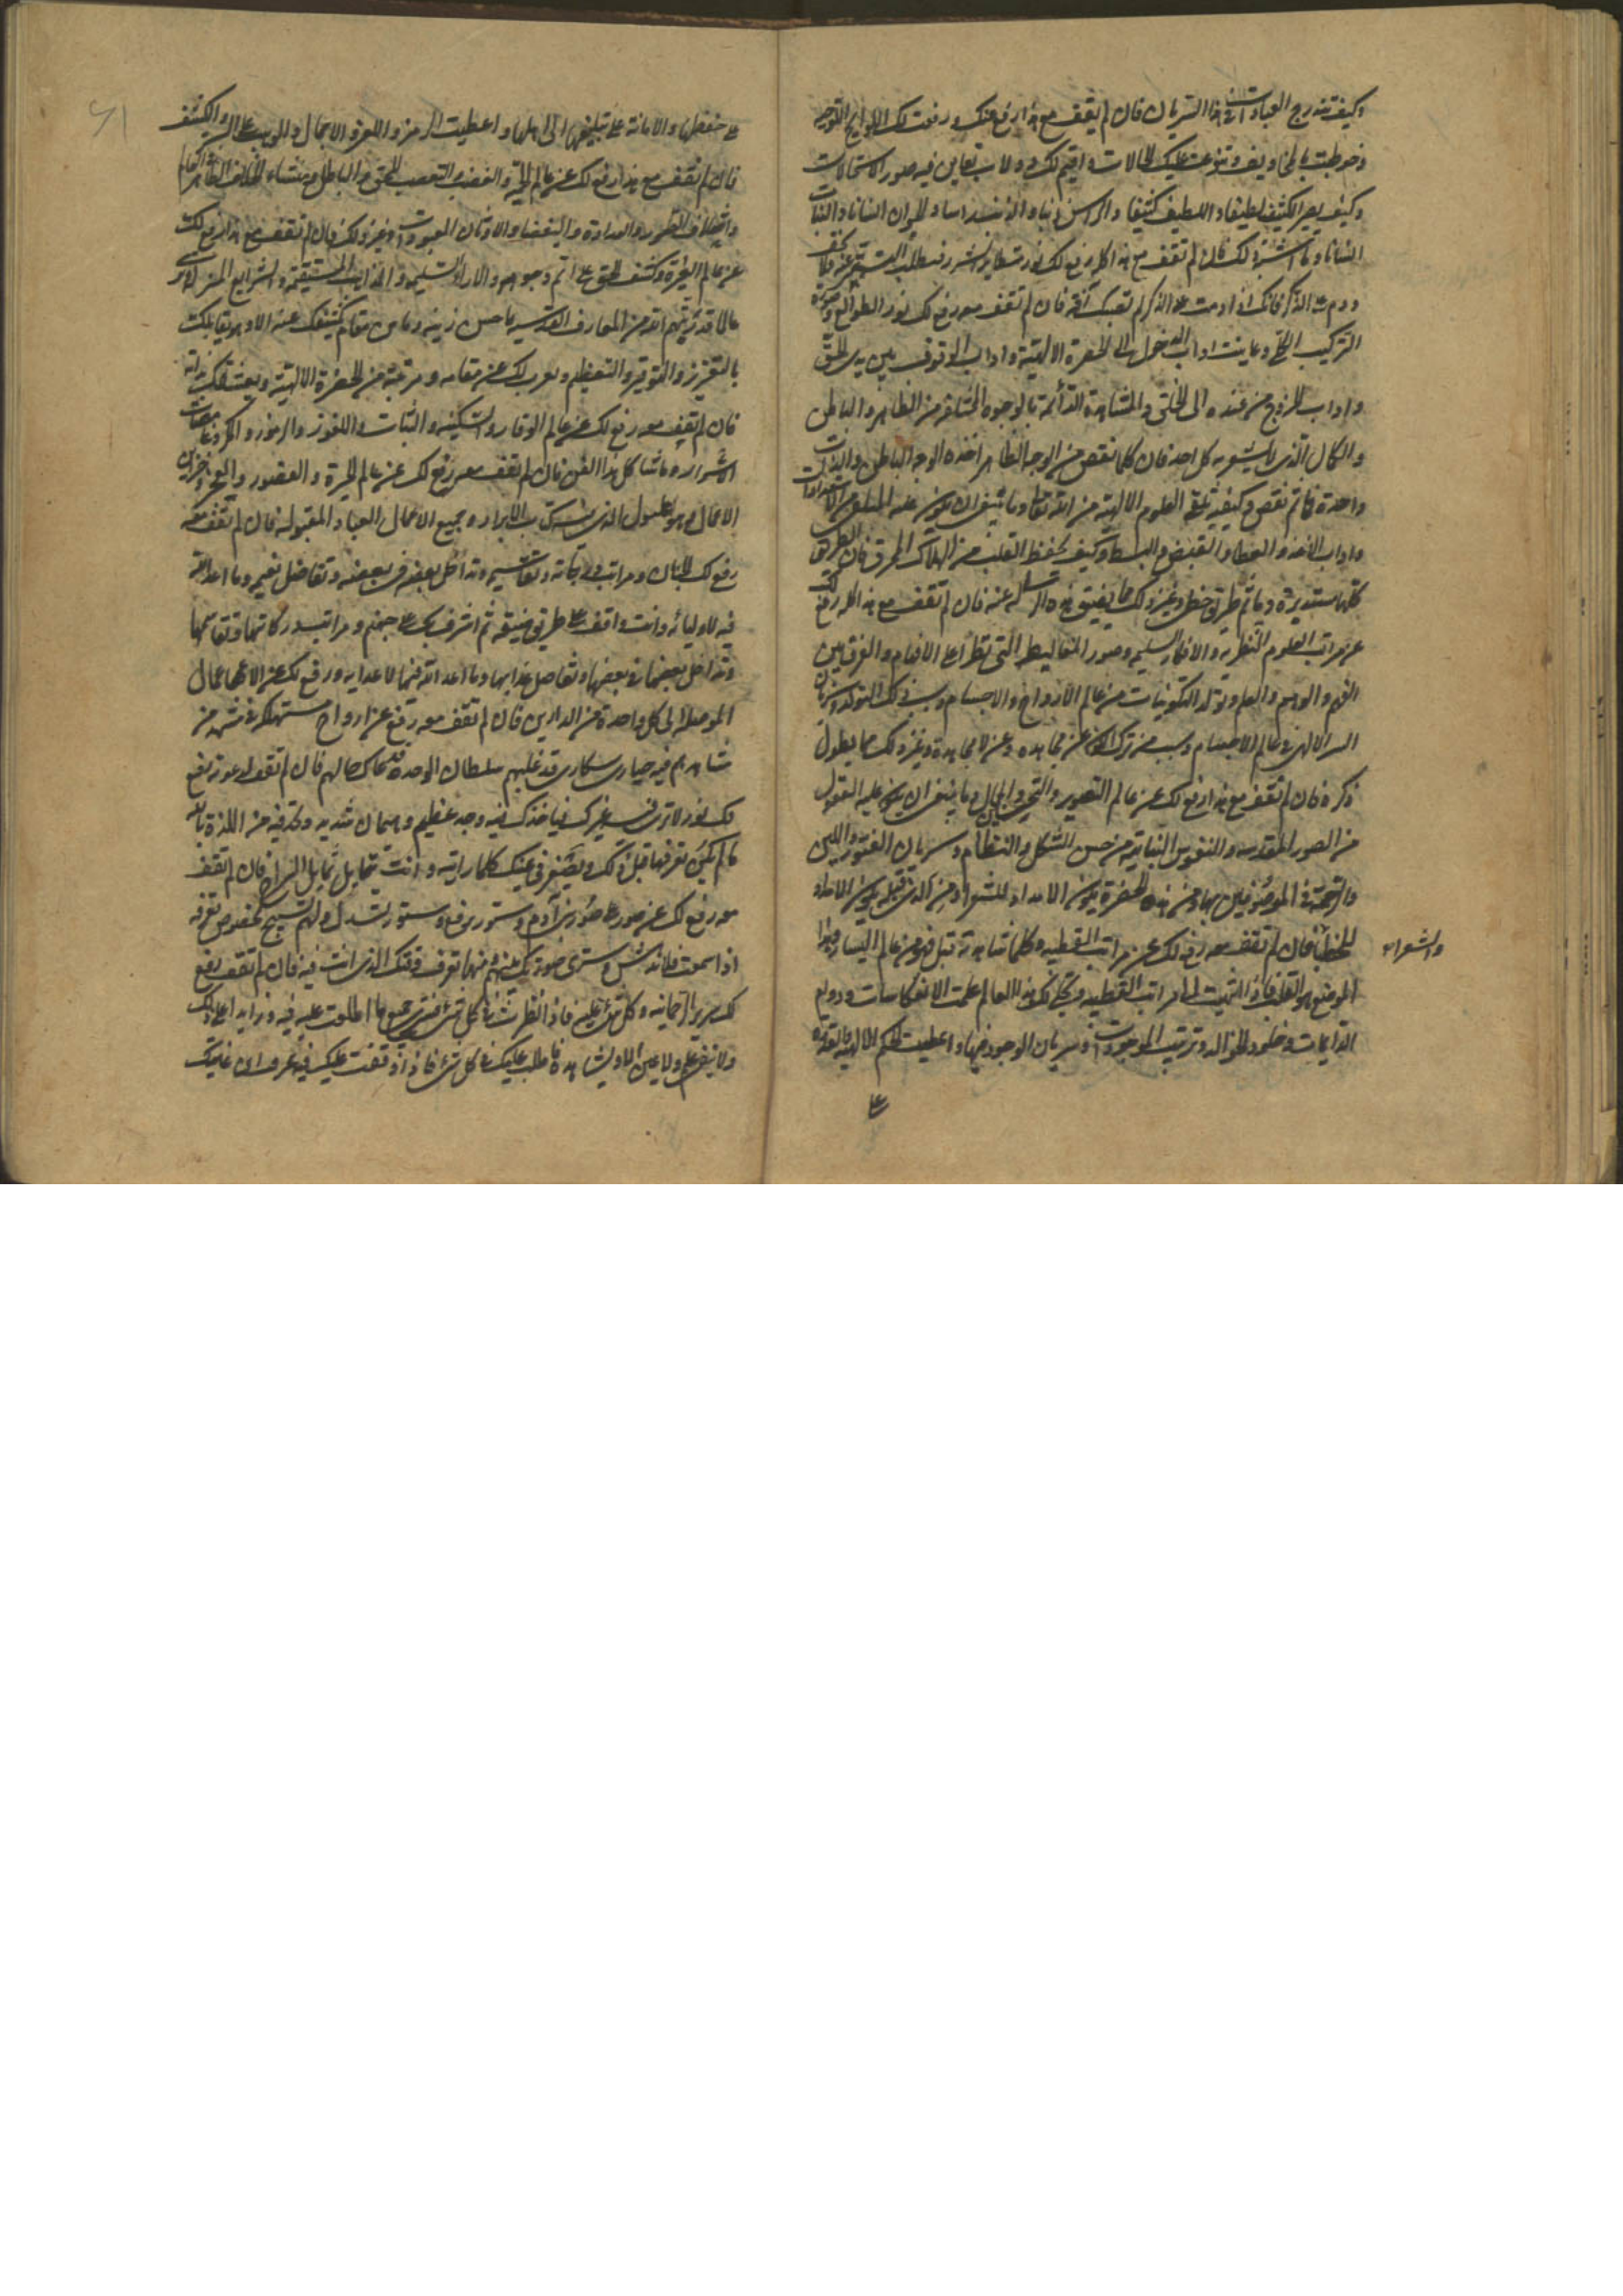 وكيف تندرج العبارات في هذا السريان فان لم تقف مع هذا رفع عنك ورفعت لك اللوايح اللوحيه
وخوطبت بالمخاويف وتنوعت عليك الحالات واقيم لك دولاب تعاين فيه صور الاستحالات
وكيف يصير الكثيف لطيفا واللطيف كثيفا والراس ذنبا والذنب راسا والحيوان انسانا والنبات
وما اشبه ذلك فان لم تقف مع هذا كله رفع لك نور متطاير الشرر فستطلب الستر عنه فلا تخف
ودم على الذكر فانك اذا دمت على الذكر لم تصبك آفة فان لم تقف معه رفع لك نور الطوالع وصورة
التركيب الكلي وعاينت اداب الدخول الى الحضرة الالهية واداب الوقوف بين يدي الحق
واداب الخروج من عنده الى الخلق والمشاهدة الدائمة بالوجوه المختلفة من الظاهر والباطن
والكمال الذي لا يشعر به كل احد فان كلما نقص من الوجه الظاهر اخذه الوجه الباطن والذات
واحدة فما ثم نقص وكيفية تلقي العلوم الالهية من الله تعالى وما ينبغي ان يكون عليه المتلقي من الاستعدادات
واداب الاخذ والعطا والقبض والبسط وكيف يحفظ القلب من الهلاك المحرق فان الطرق
كلها مستديرة وما ثم طريق خطي وغير ذلك مما يضيق هذه الرسالة عنه فان لم تقف مع هذا كله رفع لك
عن مراتب العلوم النظرية والافكار السليمه وصور المغاليط التي تطرأ على الافهام والفرق بين
الفهم والوهم والعلم وتولد التكوينات من عالم الارواح والاجسام وسبب ذلك التولد وسريان
السر الالهي في عالم الاجسام وسبب من ترك الكون عن مجاهدة وعن لا مجاهدة وغير ذلك مما يطول
ذكره فان لم تقف مع هذا رفع لك عن عالم التصوير والتحسين والجمال وما ينبغي ان يكون عليه العقول
من الصور المقدسه والنفوس النباتية من حسن الشكل والنظام وسريان الفتور واللين
والرحمة في الموصوفين بها ومن هذه الحضرة يكون الامداد للشعرا ومن الذي قبله يكون الامداد
للخطبا فان لم تقف معه رفع لك عن مراتب القطبيه وكلما شاهدته قبل فهو من عالم اليسار وهذا
والشعراء
الموضع هو القلب فاذا انتهيت الى مراتب القطبيه وتجلى لك هذا العالم علمت الانعكاسات ودوام
الدايمات وخلود الخوالد وترتيب الموجودات وسريان الوجود فيها واعطيت الحكم الالهيه والقدرة
على
على حفظها والامانة على تبليغها الى اهلها واعطيت الرمز واللغز والاجمال والوهب على الستر والكشف
فان لم تقف مع هذا رفع لك عن عالم الحيرة والغضب والتعصب للحق والباطل ومنشاء الخلاف الظاهر في العالم
واختلاف الصور والعداوة والبغضا والاوثان المعبودات وغير ذلك فان لم تقف مع هذا رفع لك
عن عالم الغيرة وكشف الحق على اتم وجوهه والاراء السليمه والمذاهب المستقيمة والشرايع المنزله وترى
عالما قد زينهم الله من المعارف القدسيه باحسن زينه وما من مقام يكشف لك عنه الا وهو يقابلك
بالتعزيز والتوقير والتعظيم ويعرب لك عن مقامه ومرتبته من الحضرة الالهية ويعشقك بذاته
فان لم تقف معه رفع لك عن عالم الوقار والسكينه والثبات واللغوز والرموز والمكر وغامضات
الاسرار وما شاكل هذا الفن فان لم تقف معه رفع لك عن عالم الحيرة والقصور والعجز وخزاين
الاعمال وهو عليون الذي يشتمل كتاب الابرار وجميع الاعمال العباد المقبوله فان لم تقف معه
رفع لك الجنان ومراتب درجاته وتقاسيمه وتداخل بعضه في بعضه وتفاضل نعيمه وما اعد الله
فيه لاوليائه وانت واقف على طريق ضيقه ثم اشرف بك على جهنم ومراتب دركاتها وتقاسيمها
وتداخل بعضها في بعضها وتفاضل عذابها وما اعد الله فيها لاعدايه ورفع لك عن الاعمال
الموصله الى كل واحدة من الدارين فان لم تقف معه رفع عن ارواح مستهلكه في مشهد من
مشاهدهم فيه حيارى سكارى قد غلبهم سلطان الوجد فدعاك حالهم فان لم تقف لدعوته رفع
لك نور لا ترى فيه غيرك فياخذك فيه وجد عظيم وهيمان شديد وتجد فيه من اللذة بالله
ما لم تكن تعرفها قبل ذلك ويصغر في عينك كلما رايته وانت تتمايل تمايل السراج فان لم تقف
معه رفع لك عن صور على صور بني آدم وستور ترفع وستور تسدل ولهم تسبيح مخصوص تعرفه
اذا سمعت فلا تدهش وسترى صورتك بينهم ومنها تعرف وقتك الذي انت فيه فان لم تقف رفع
لك سرير الرحمانيه وكل شيء عليه فاذا نظرت في كل شيء فترى جميع ما اطلعت عليه فيه وزايد على ذلك
ولا يبقى علم ولا عين الا وتشاهده فاطلب عليك في كل شيء فاذا وقفت عليك فيه عرفت اين غايتك